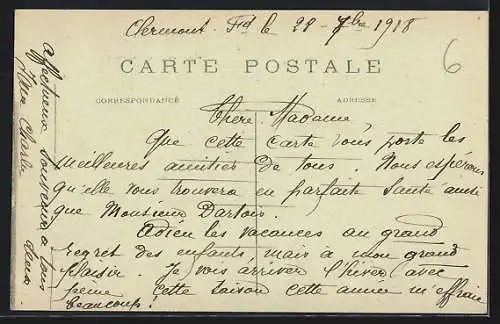 Clermont Fd le 28 - 7bre 1918
6
CARTE POSTALE
CORRESPONDANCE
ADRESSE
Chère Madame,
Que cette carte vous porte les
meilleures amitiés de tous. Nous espérons
qu'elle vous trouvera en parfaite santé ainsi
que Monsieur Dartois.
Adieu les vacances au grand
regret des enfants, mais à mon grand
plaisir. Je vois arriver l'hiver avec
peine cette saison cette année m'effraie
beaucoup!
affectueux souvenirs à tous
deux